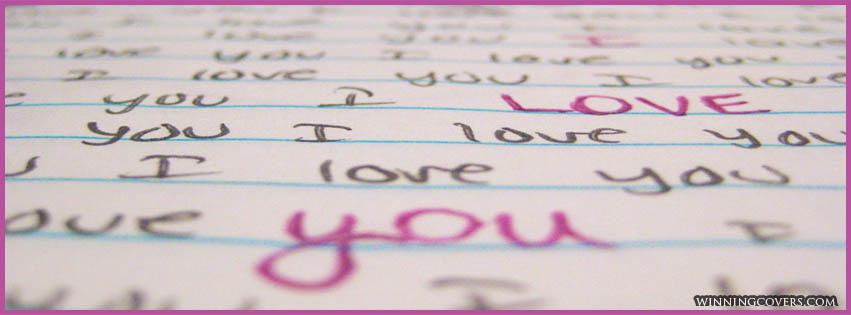 I love you I love
love you I love you
I love you I love
you I LOVE
you I love you
I love you
ove you I
you I lo
WINNINGCOVERS.COM